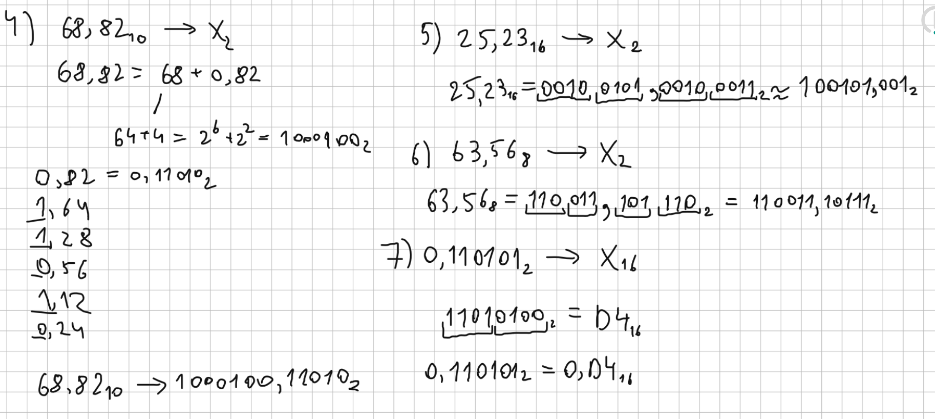 4) 68,82₁₀ → X₂
68,82 = 68 + 0,82
64+4 = 2⁶ + 2² = 1000100₂
0,82 = 0,11010₂
1,64
1,28
0,56
1,12
0,24
68,82₁₀ → 1000100,11010₂
5) 25,23₁₆ → X₂
25,23₁₆ = 0010 0101 , 0010 0011₂ ≈ 100101,001₂
6) 63,56₈ → X₂
63,56₈ = 110 011 , 101 110₂ = 110011,10111₂
7) 0,110101₂ → X₁₆
1101 0100₂ = D4₁₆
0,110101₂ = 0,D4₁₆